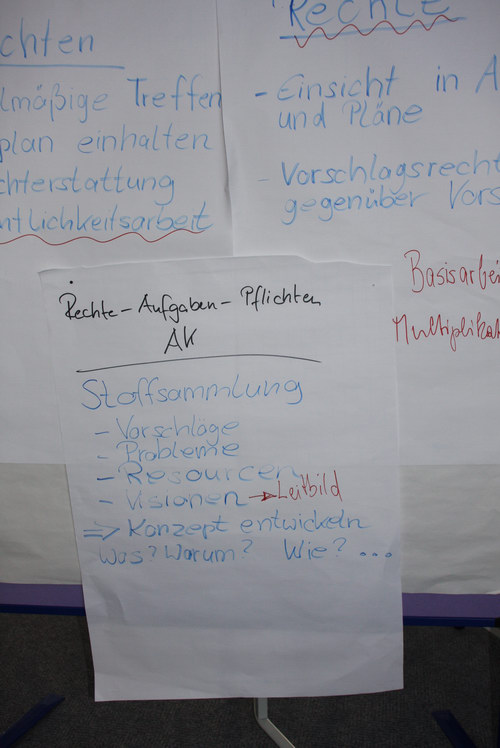 chten
lmäßige Treffen
plan einhalten
chterstattung
ntlichkeitsarbeit
Rechte
- Einsicht in A
und Pläne
- Vorschlagsrecht
gegenüber Vors
Basisarbei
Multiplikat
Rechte - Aufgaben - Pflichten
AK
Stoffsammlung
- Vorschläge
- Probleme
- Resourcen
- Visionen → Leitbild
=> Konzept entwickeln
Was? Warum? Wie? ...